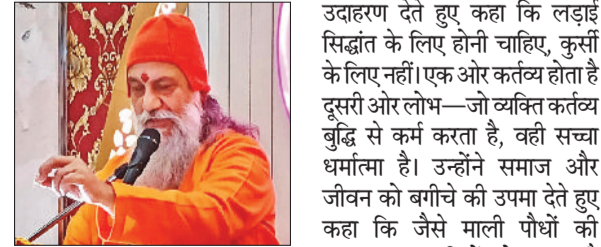 उदाहरण देते हुए कहा कि लड़ाई
सिद्धांत के लिए होनी चाहिए, कुर्सी
के लिए नहीं। एक ओर कर्तव्य होता है
दूसरी ओर लोभ—जो व्यक्ति कर्तव्य
बुद्धि से कर्म करता है, वही सच्चा
धर्मात्मा है। उन्होंने समाज और
जीवन को बगीचे की उपमा देते हुए
कहा कि जैसे माली पौधों की